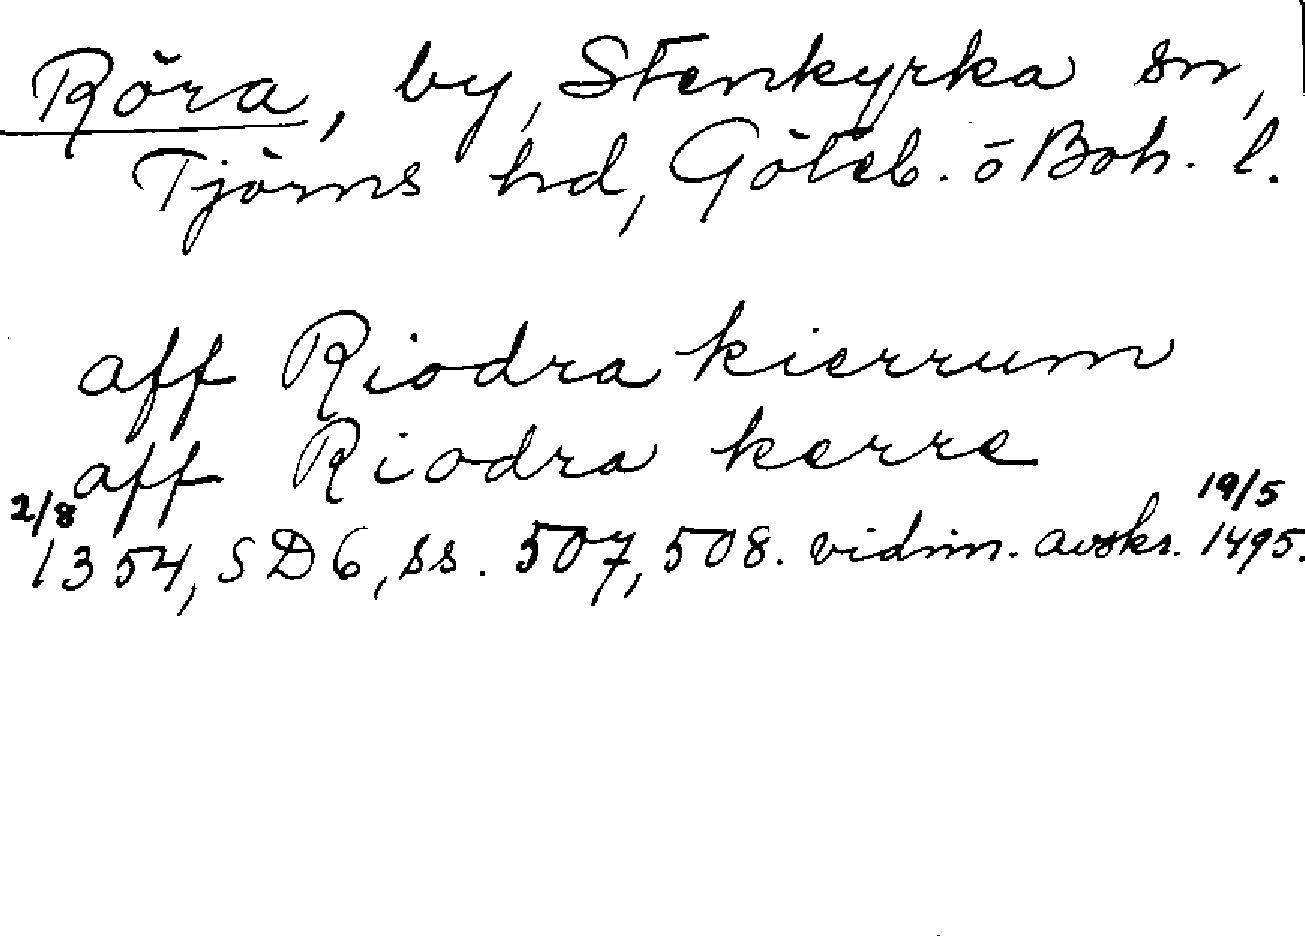 Röra, by, Stenkyrka sn,
Tjörns hd, Göteb. o Boh. l.
aff Riodra kierrum
aff Riodra kerre
2/8 19/5
1354, SD6, ss. 507, 508. vidim. avskr. 1495.